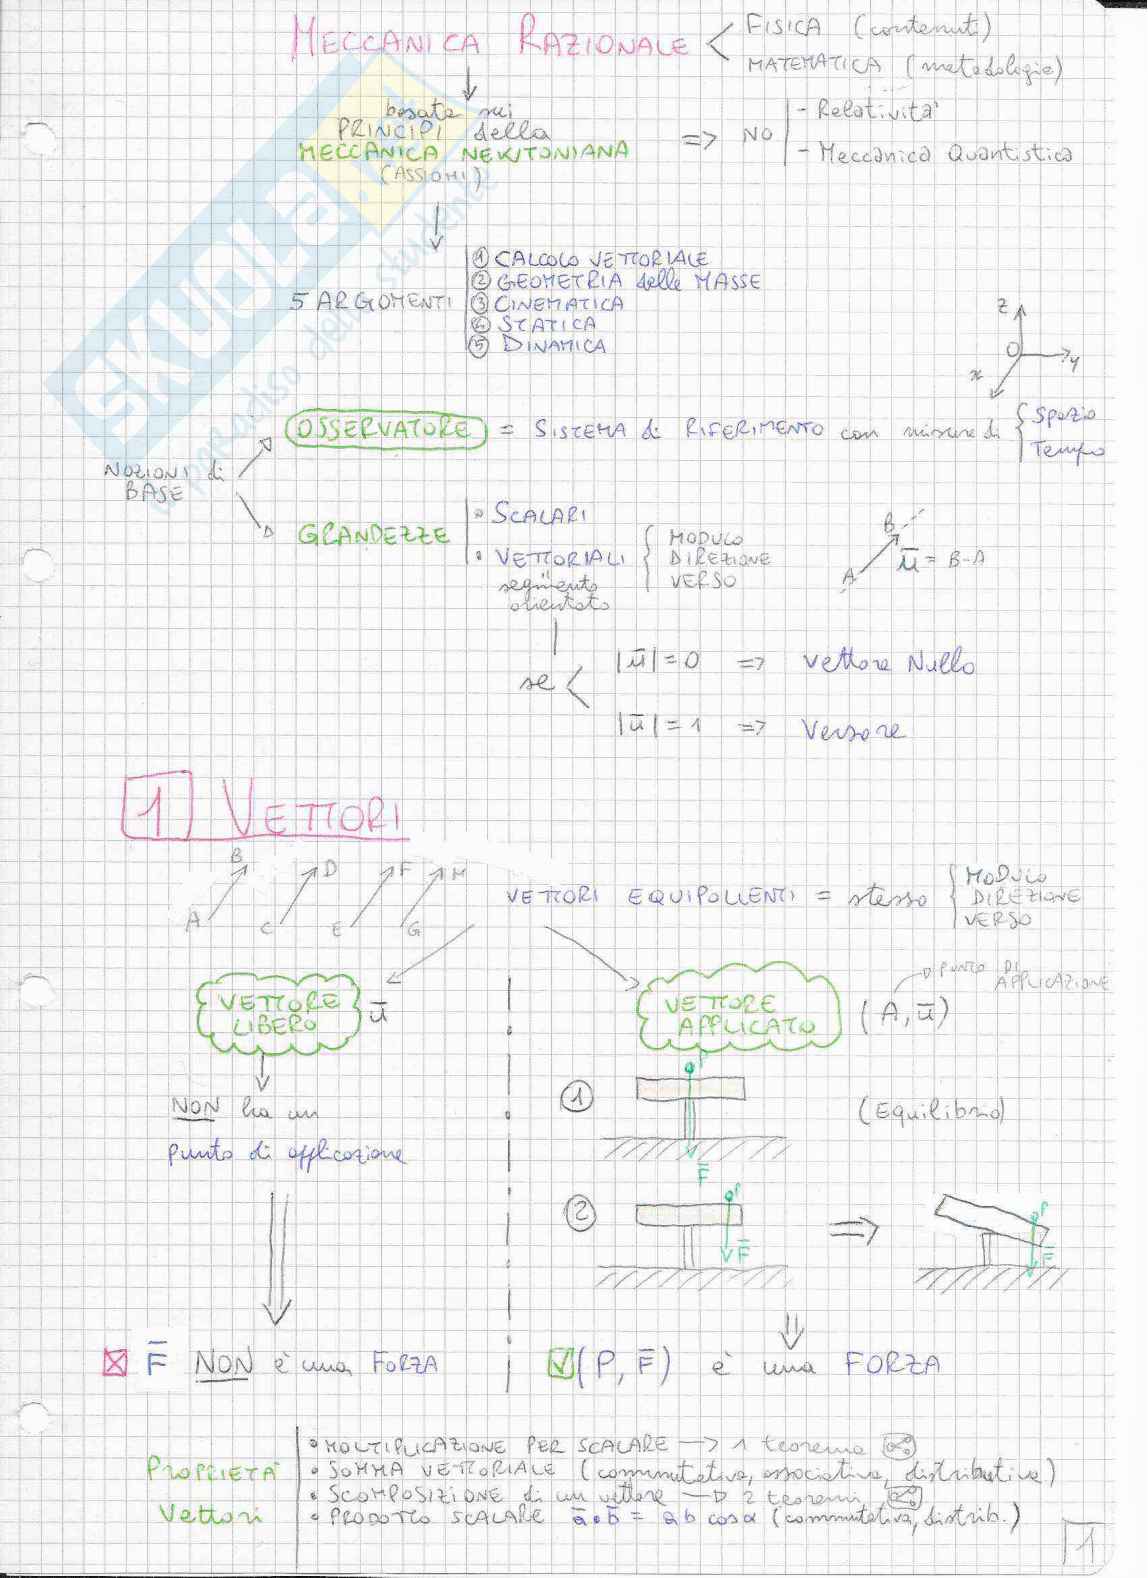 MECCANICA RAZIONALE < FISICA (contenuti)
MATEMATICA (metodologie)
basata sui
PRINCIPI della
MECCANICA NEWTONIANA
(ASSIOMI)
=> NO
- Relatività
- Meccanica Quantistica
5 ARGOMENTI
① CALCOLO VETTORIALE
② GEOMETRIA delle MASSE
③ CINEMATICA
④ STATICA
⑤ DINAMICA
z
O
y
x
NOZIONI di
BASE
OSSERVATORE = SISTEMA di RIFERIMENTO con misure di { Spazio
Tempo
GRANDEZZE
• SCALARI
• VETTORIALI { MODULO
DIREZIONE
VERSO
segmento
orientato
B
A
ū = B-A
se <
|ū| = 0 => Vettore Nullo
|ū| = 1 => Versore
1 VETTORI
B D F H
A C E G
VETTORI EQUIPOLLENTI = stesso { MODULO
DIREZIONE
VERSO
VETTORE
LIBERO
ū
VETTORE
APPLICATO
(A, ū)
PUNTO DI
APPLICAZIONE
NON ha un
punto di applicazione
① P
F̄
(Equilibrio)
② P
F̄
=>
P
F̄
F̄ NON è una FORZA
(P, F̄) è una FORZA
PROPRIETÀ
Vettori
• MOLTIPLICAZIONE PER SCALARE → 1 teorema
• SOMMA VETTORIALE (commutativa, associativa, distributiva)
• SCOMPOSIZIONE di un vettore → 2 teoremi
• PRODOTTO SCALARE ā•b̄ = ab cosα (commutativa, distrib.)
1
SKUOLA.it
il paradiso dello studente